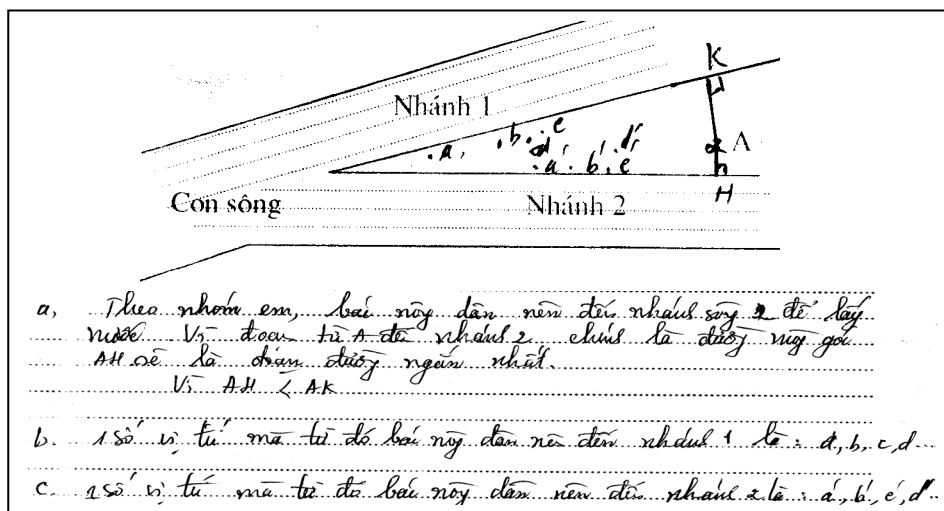 K
Nhánh 1
b. c
a, d d'
A
a' b' c'
H
Con sông
Nhánh 2
a, Theo nhóm em, bác nông dân nên đến nhánh sông 2 để lấy
nước Vì đoạn từ A đến nhánh 2 chính là đường
AH sẽ là đoạn đường ngắn nhất.
Vì AH < AK
b. 1 số vị trí mà từ đó bác nông dân nên đến nhánh 1 là: a, b, c, d...
c. 1 số vị trí mà từ đó bác nông dân nên đến nhánh 2 là: a', b', c', d'...